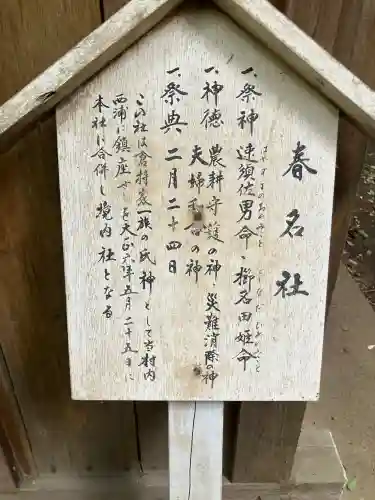 春名社
一、祭神 速須佐男命、櫛名田姫命
はやすさのおのみこと くしなだひめのみこと
一、神徳 農耕守護の神、災難消除の神
夫婦和合の神
一、祭典 二月二十四日
この社は倉持家一族の氏神として当村内
西浦に鎮座せしも大正六年五月二十五日に
本社に合併し境内社となる